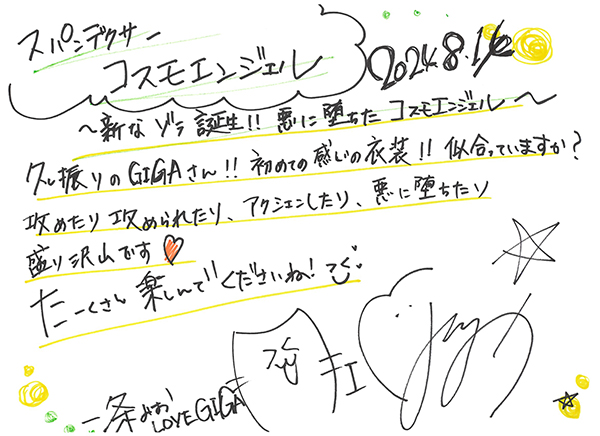 スパンデクサー
コスモエンジェル
2024.8.16
～新なゾラ誕生!! 悪に堕ちた コスモエンジェル～
久し振りのGIGAさん!! 初めての感じの衣装!! 似合っていますか?
攻めたり 攻められたり、アクションしたり、悪に堕ちたり
盛り沢山です♡
たーくさん 楽しんでくださいね!
一条みお LOVE GIGA